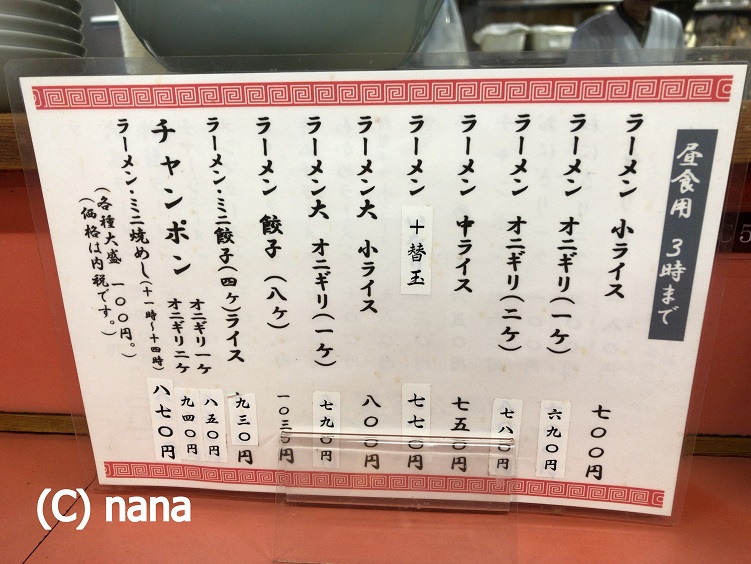 昼食用 3時まで
ラーメン 小ライス 七〇〇円
ラーメン オニギリ(一ケ) 六九〇円
ラーメン オニギリ(二ケ) 七八〇円
ラーメン 中ライス 七五〇円
ラーメン +替玉 七七〇円
ラーメン大 小ライス 八〇〇円
ラーメン大 オニギリ(一ケ) 七九〇円
ラーメン 餃子(八ケ) 一〇三〇円
ラーメン・ミニ餃子(四ケ)ライス 九三〇円
チャンポン オニギリ一ケ 八五〇円
オニギリ二ケ 九四〇円
ラーメン・ミニ焼めし(十一時〜十四時) 八七〇円
(各種大盛 一〇〇円。)
(価格は内税です。)
(C) nana